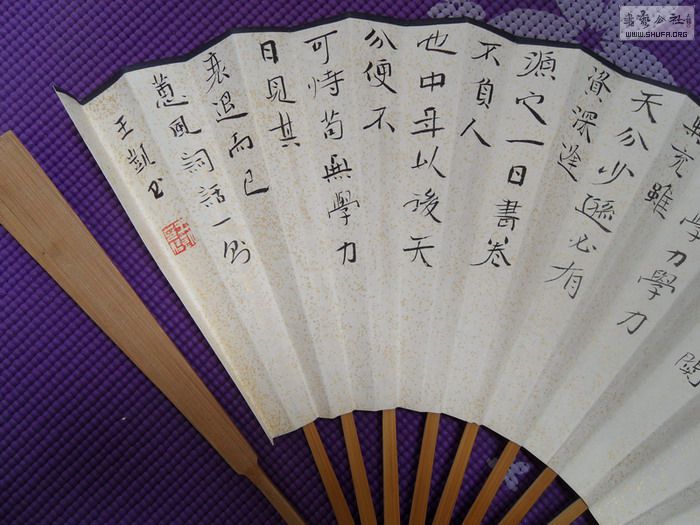 無充雖學力學力
天分少遜必有
資深逢
源之一日書卷
不負人
也中年以後天
分便不
可恃苟無學力
日見其
衰退而已
蕙風詞話一則
王凱書
書法公社
WWW.SHUFA.ORG